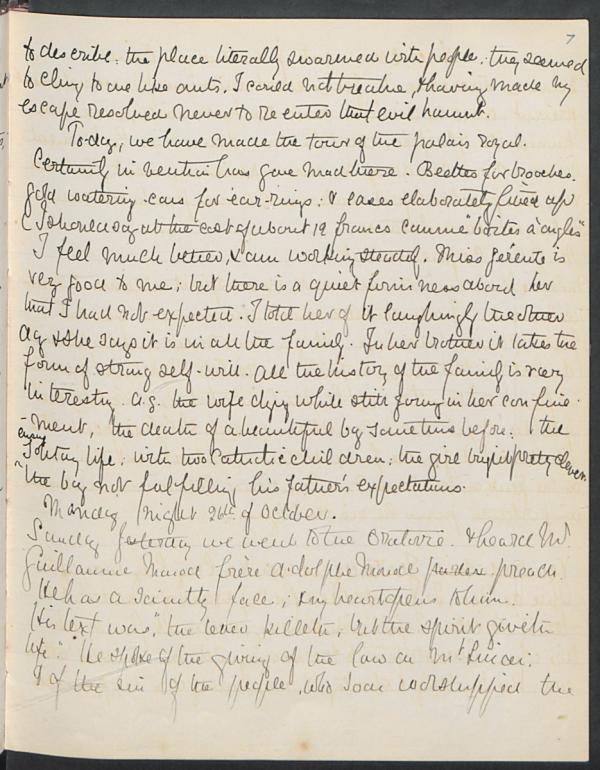 7
to describe. the place literally swarmed with people. they seemed
to cling to one like ants. I could not breathe, & having made my
escape resolved never to re enter that evil haunt.
To-day, we have made the tour of the palais royal.
Certainly invention has gone mad here. Beetles for brooches.
gold watering-cans for ear-rings: & cases elaborately fitted up
(I should say at the cost of about 12 francs
I feel much better, & am working steadily. Miss Gérente is
very good to me; but there is a quiet firmness about her
that I had not expected. I told her of it laughingly the other
day & she says it is in all the family. In her brother it takes the
form of strong self-will. All the history of the family is very
interesting. e.g. the wife dying while still young in her confine-
-ment, the death of a beautiful boy sometime before. the
solitary life, with two Catholic children; the girl bright pretty clever
"the boy not fulfilling his father's expectations.
Monday night 26th of October.
Sunday yesterday we went to the Oratoire. & heard Mr
Guillaume Monod frère d'Adolphe Monod preach.
He has a saintly face, & my heart opens to him.
His text was, "the letter killeth, but the spirit giveth
life." He spoke of the giving of the law on Mt Sinai;
& of the sin of the people, who soon worshipped the